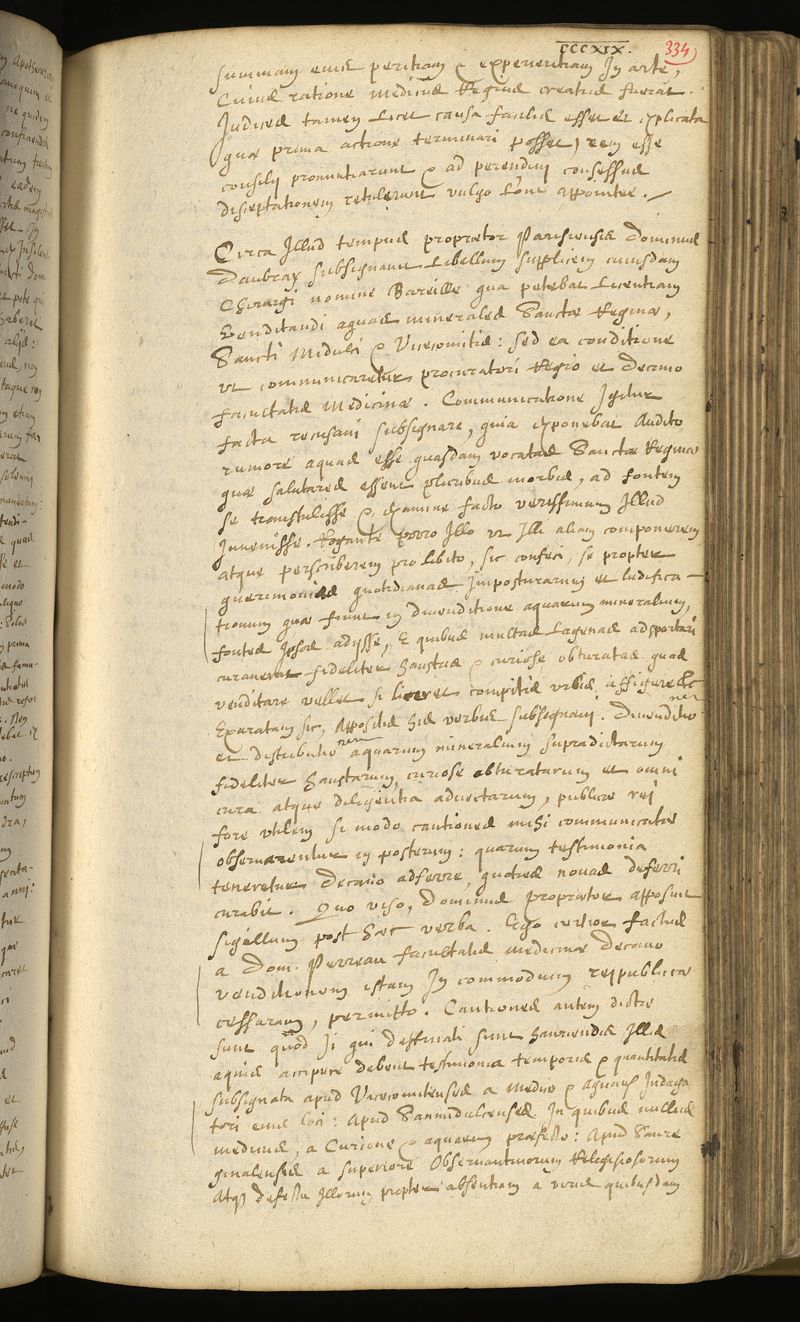 CCCXIX.
334
summam eius peritiam & experientiam In arte,
Cuius ratione medicus Regius creatus fuerat.
Iudices tamen licet causa facilis esset et explicata
quæ prima actione terminari posset, rem esse
consilij pronuntiarunt & ad perendin consessus
disceptationem retulerunt vulgo appointee.
Circa Illud tempus proprætor Parisiensis Dominus
Daubray subsignavit Libellum supplicem cuiusdam
Chirurgi nomine Bareille qua petebat Licentiam
Venditandi aquas minerales Sanctæ Reginæ,
Sancti Miduleï & Vicecomitis: sed ea conditione
vt communicaretur procuratori Regio et Decano
facultatis Medicinæ. Communicatione Igitur
facta recusavi subsignare, quia exponebat Audito
rumore aquas esse quasdam vocatas Sanctæ Reginæ
quæ salutares essent pluribus morbis, ad fontem
se transtulisse & examine facto verissimum Illud
Invenisse. Rogante porro Illo vt Illi aliam componerem
atque perscriberem pro libito, sic confeci, se propter
querimonias quotidianas Imposturarum et ludifica-
tionum quæ fiunt in divenditione aquarum mineralium,
fontes Ipsos adijsse, E quibus multas Lagenas adsportari
curaverat fideliter haustas & curiose obturatas quas
venditare vellet si liceret compitis urbis affigere &c
Exaratam sic, Appositis his verbis subsignavi. Divenditionem
et distributionem aquarum mineralium supradictarum
fideliter haustarum, curiose obturatarum et omni
cura atque diligentia advectarum, publicæ rei
fore vtilem si modo cautiones mihi communicatæ
observarentur in posterum: quarum testimonia
teneretur Decano adferre, quoties novas deferri
curabit. Quo viso, Dominus proprætor apposuit
sigillum post hæc verba. Ego certior factus
a Dom. Perreau facultatis medicinæ Decano
venditionem istam In commodum reipublicæ
cessuram, permitto. Cautiones autem dictæ
sunt quod Ii qui destinati sunt hauriendis Illis
aquis accipere debent testimonia temporis & quantitatis
subsignata apud Vicecomitenses a medico & aquarum Indaga
tori eius loci: Apud Sanmidulcenses In quibus nullus
medicus, a Curione & aquarum præfecto: Apud Sanre
ginalenses a superiore Observantinorum Religiosorum
Atque defectu Illorum propter absentiam a viris quibusdam